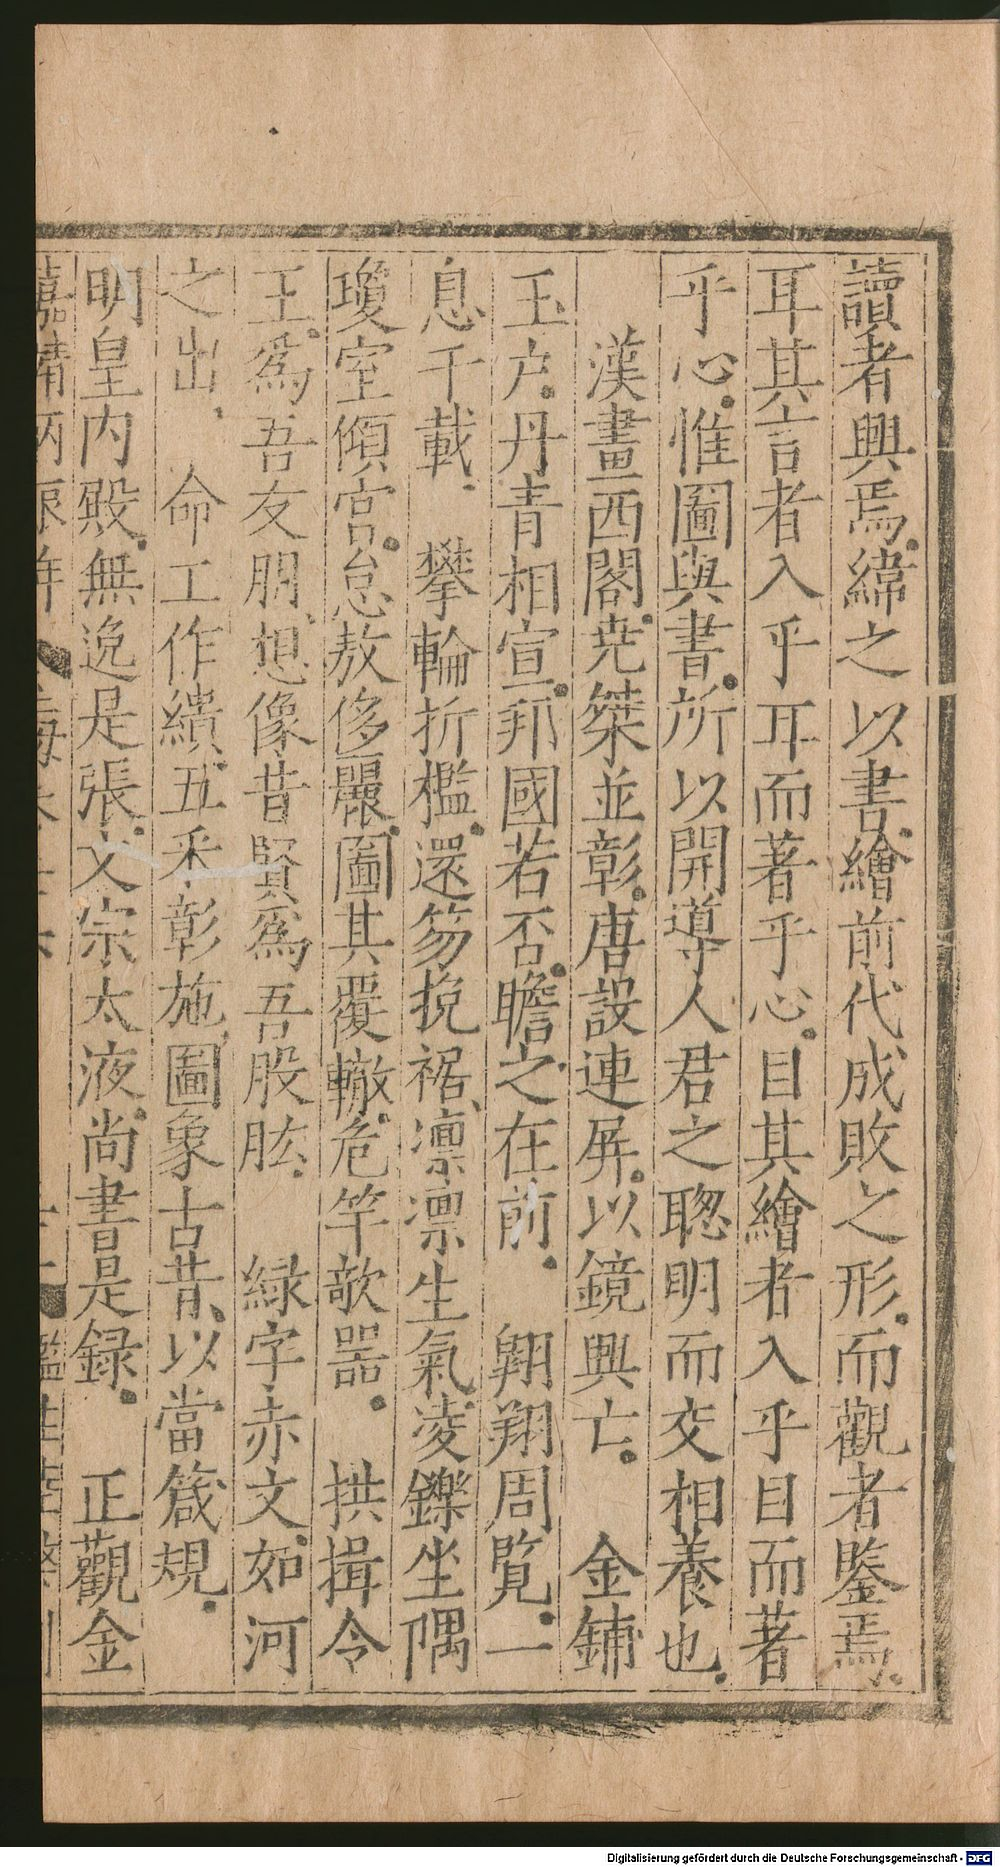 讀者興焉緯之以書繪前代成敗之形而觀者鑒焉
耳其言者入乎耳而著乎心目其繪者入乎目而著
乎心惟圖與書所以開導人君之聰明而交相養也
漢畫西閣堯桀並彰唐設連屏以鏡興亡 金鋪
玉户丹青相宣邦國若否瞻之在前 翱翔周覽一
息千載 攀輪折檻還笏挽裾凛凛生氣凌鑠坐隅
瓊室傾宮怠敖侈麗圖其覆轍危竿欹器 拱揖令
王爲吾友朋想像昔賢爲吾股肱 緑字赤文如河
之出 命工作繢五釆彰施圖象古昔以當箴規
明皇内殿無逸是張文宗太液尚書是録 正觀金
嘉靖丙辰年
Digitalisierung gefördert durch die Deutsche Forschungsgemeinschaft - DFG